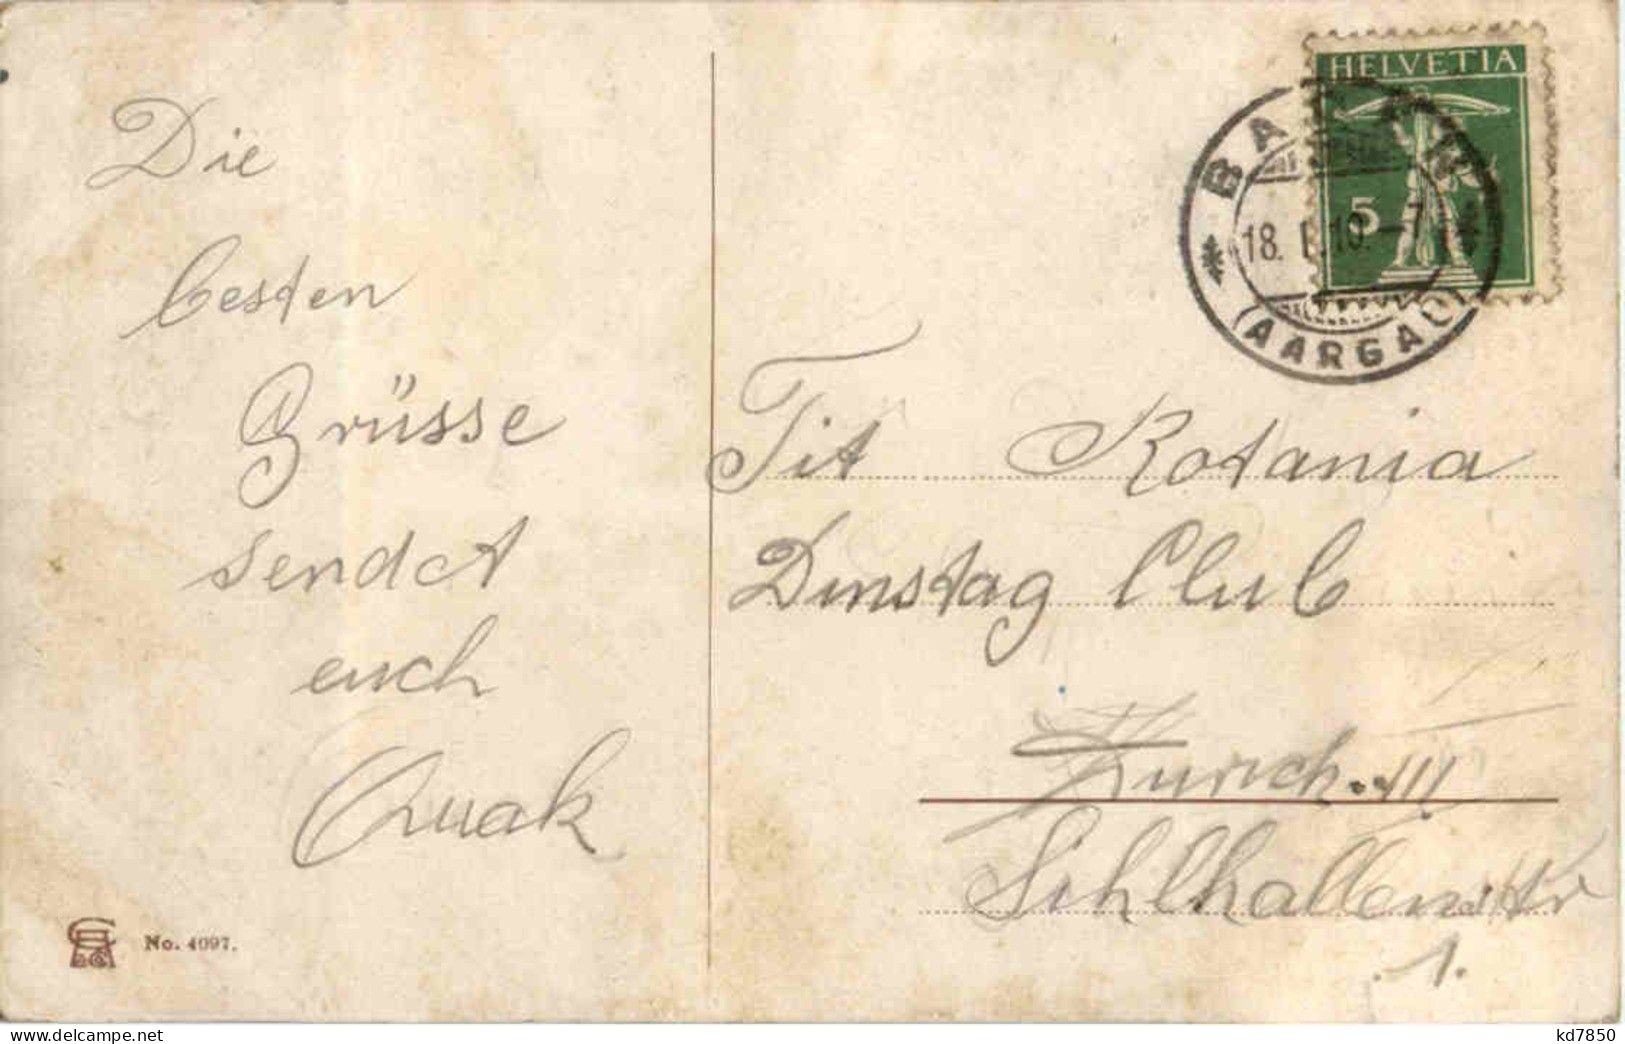 Die
besten
Grüsse
sendet
euch
Quak
No. 4097.
HELVETIA
5
BADEN
18. 10. – 7
(AARGAU)
Tit Rotania
Dinstag Club
Zürich. III
Sihlhallenstr
1.
kd7850